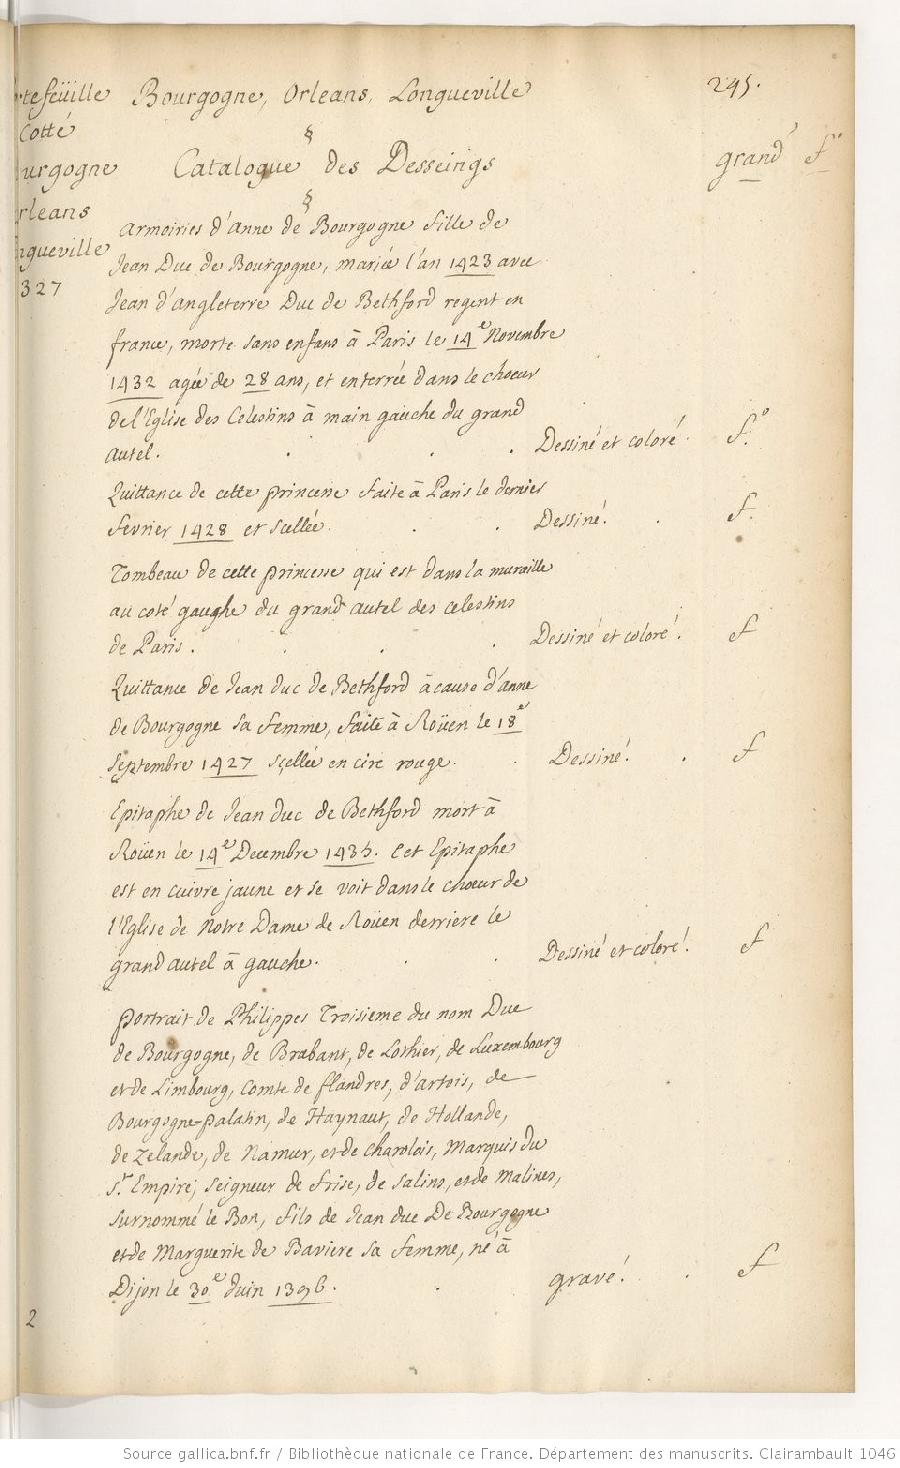 tefeüille Bourgogne, Orleans, Longueville 245.
Cotté §
urgogne Catalogue des Desseings grand f°
rleans §
ngueville
327
Armoiries d'Anne de Bourgogne fille de
Jean Duc de Bourgogne, mariée l'an 1423 avec
Jean d'angleterre Duc de Bethford regent en
france, morte sans enfans à Paris le 14e Novembre
1432 agée de 28 ans, et enterrée dans le choeur
de l'Eglise des Celestins à main gauche du grand
autel. Dessiné et coloré. f.°
Quittance de cette princesse faite à Paris le dernier
fevrier 1428 et scellée. Dessiné. f.
Tombeau de cette princesse qui est dans la muraille
au coté gauche du grand autel des celestins
de Paris. Dessiné et coloré. f
Quittance de Jean duc de Bethford à cause d'anne
de Bourgogne sa femme, faite à Roüen le 18e
Septembre 1427 scellée en cire rouge. Dessiné. f
Epitaphe de Jean duc de Bethford mort à
Roüen le 14e Decembre 1435. Cet Epitaphe
est en cuivre jaune et se voit dans le choeur de
l'Eglise de Notre Dame de Roüen derriere le
grand autel à gauche. Dessiné et coloré. f
portrait de Philippes Troisieme du nom Duc
de Bourgogne, de Brabant, de Lothier, de Luxembourg
et de Limbourg, Comte de flandres, d'artois, de
Bourgogne-palatin, de Haynaut, de Hollande,
de Zelande, de Namur, et de charolois, Marquis du
St. Empire, Seigneur de frise, de salins, et de Malines,
surnommé le Bon, fils de Jean duc De Bourgogne
et de Marguerite de Baviere sa femme, né à
Dijon le 30e Juin 1396. gravé. f
2
Source gallica.bnf.fr / Bibliothèque nationale de France. Département des manuscrits. Clairambault 1046